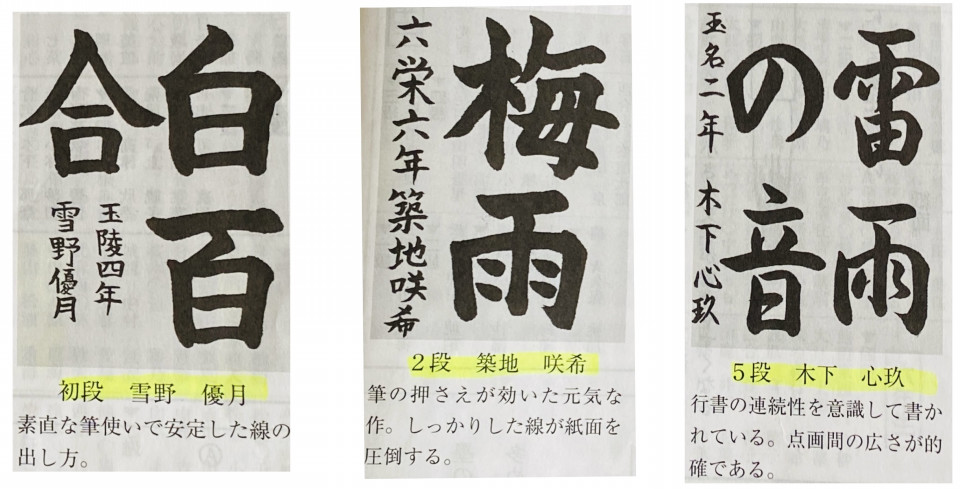 白百
合
玉陵四年
雪野優月
初段 雪野 優月
素直な筆使いで安定した線の
出し方。
梅雨
六栄六年築地咲希
2段 築地 咲希
筆の押さえが効いた元気な
作。しっかりした線が紙面を
圧倒する。
雷雨
の音
玉名二年 木下心玖
5段 木下 心玖
行書の連続性を意識して書か
れている。点画間の広さが的
確である。